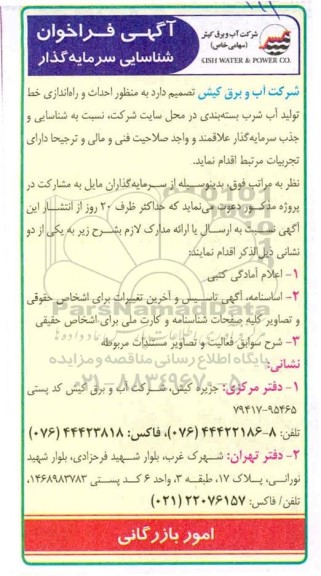 شرکت آب و برق کیش
(سهامی خاص)
KISH WATER & POWER CO.
آگهی فراخوان
شناسایی سرمایه‌گذار
شرکت آب و برق کیش تصمیم دارد به منظور احداث و راه‌اندازی خط
تولید آب شرب بسته‌بندی در محل سایت شرکت، نسبت به شناسایی و
جذب سرمایه‌گذار علاقمند و واجد صلاحیت فنی و مالی و ترجیحا دارای
تجربیات مرتبط اقدام نماید.
نظر به مراتب فوق، بدینوسیله از سرمایه‌گذاران مایل به مشارکت در
پروژه مذکور دعوت می‌نماید که حداکثر ظرف ۲۰ روز از انتشار این
آگهی نسبت به ارسال یا ارائه مدارک لازم بشرح زیر به یکی از دو
نشانی ذیل‌الذکر اقدام نمایند:
۱- اعلام آمادگی کتبی
۲- اساسنامه، آگهی تاسیس و آخرین تغییرات برای اشخاص حقوقی
و تصاویر کلیه صفحات شناسنامه و کارت ملی برای اشخاص حقیقی
۳- شرح سوابق فعالیت و تصاویر مستندات مربوطه
نشانی:
۱- دفتر مرکزی: جزیره کیش، شرکت آب و برق کیش کد پستی
۷۹۴۱۷-۹۵۴۶۵
تلفن: ۸-۴۴۴۲۲۱۸۶ (۰۷۶)، فاکس: ۴۴۴۲۳۸۱۸ (۰۷۶)
۲- دفتر تهران: شهرک غرب، بلوار شهید فرحزادی، بلوار شهید
نورانی، پلاک ۱۷، طبقه ۳، واحد ۶ کد پستی ۱۴۶۸۹۸۳۷۸۳،
تلفن/ فاکس: ۲۲۰۷۶۱۵۷ (۰۲۱)
امور بازرگانی
ParsNamadData
پایگاه اطلاع رسانی مناقصه و مزایده
۰۲۱-۸۸۳۴۹۶۷۰-۵